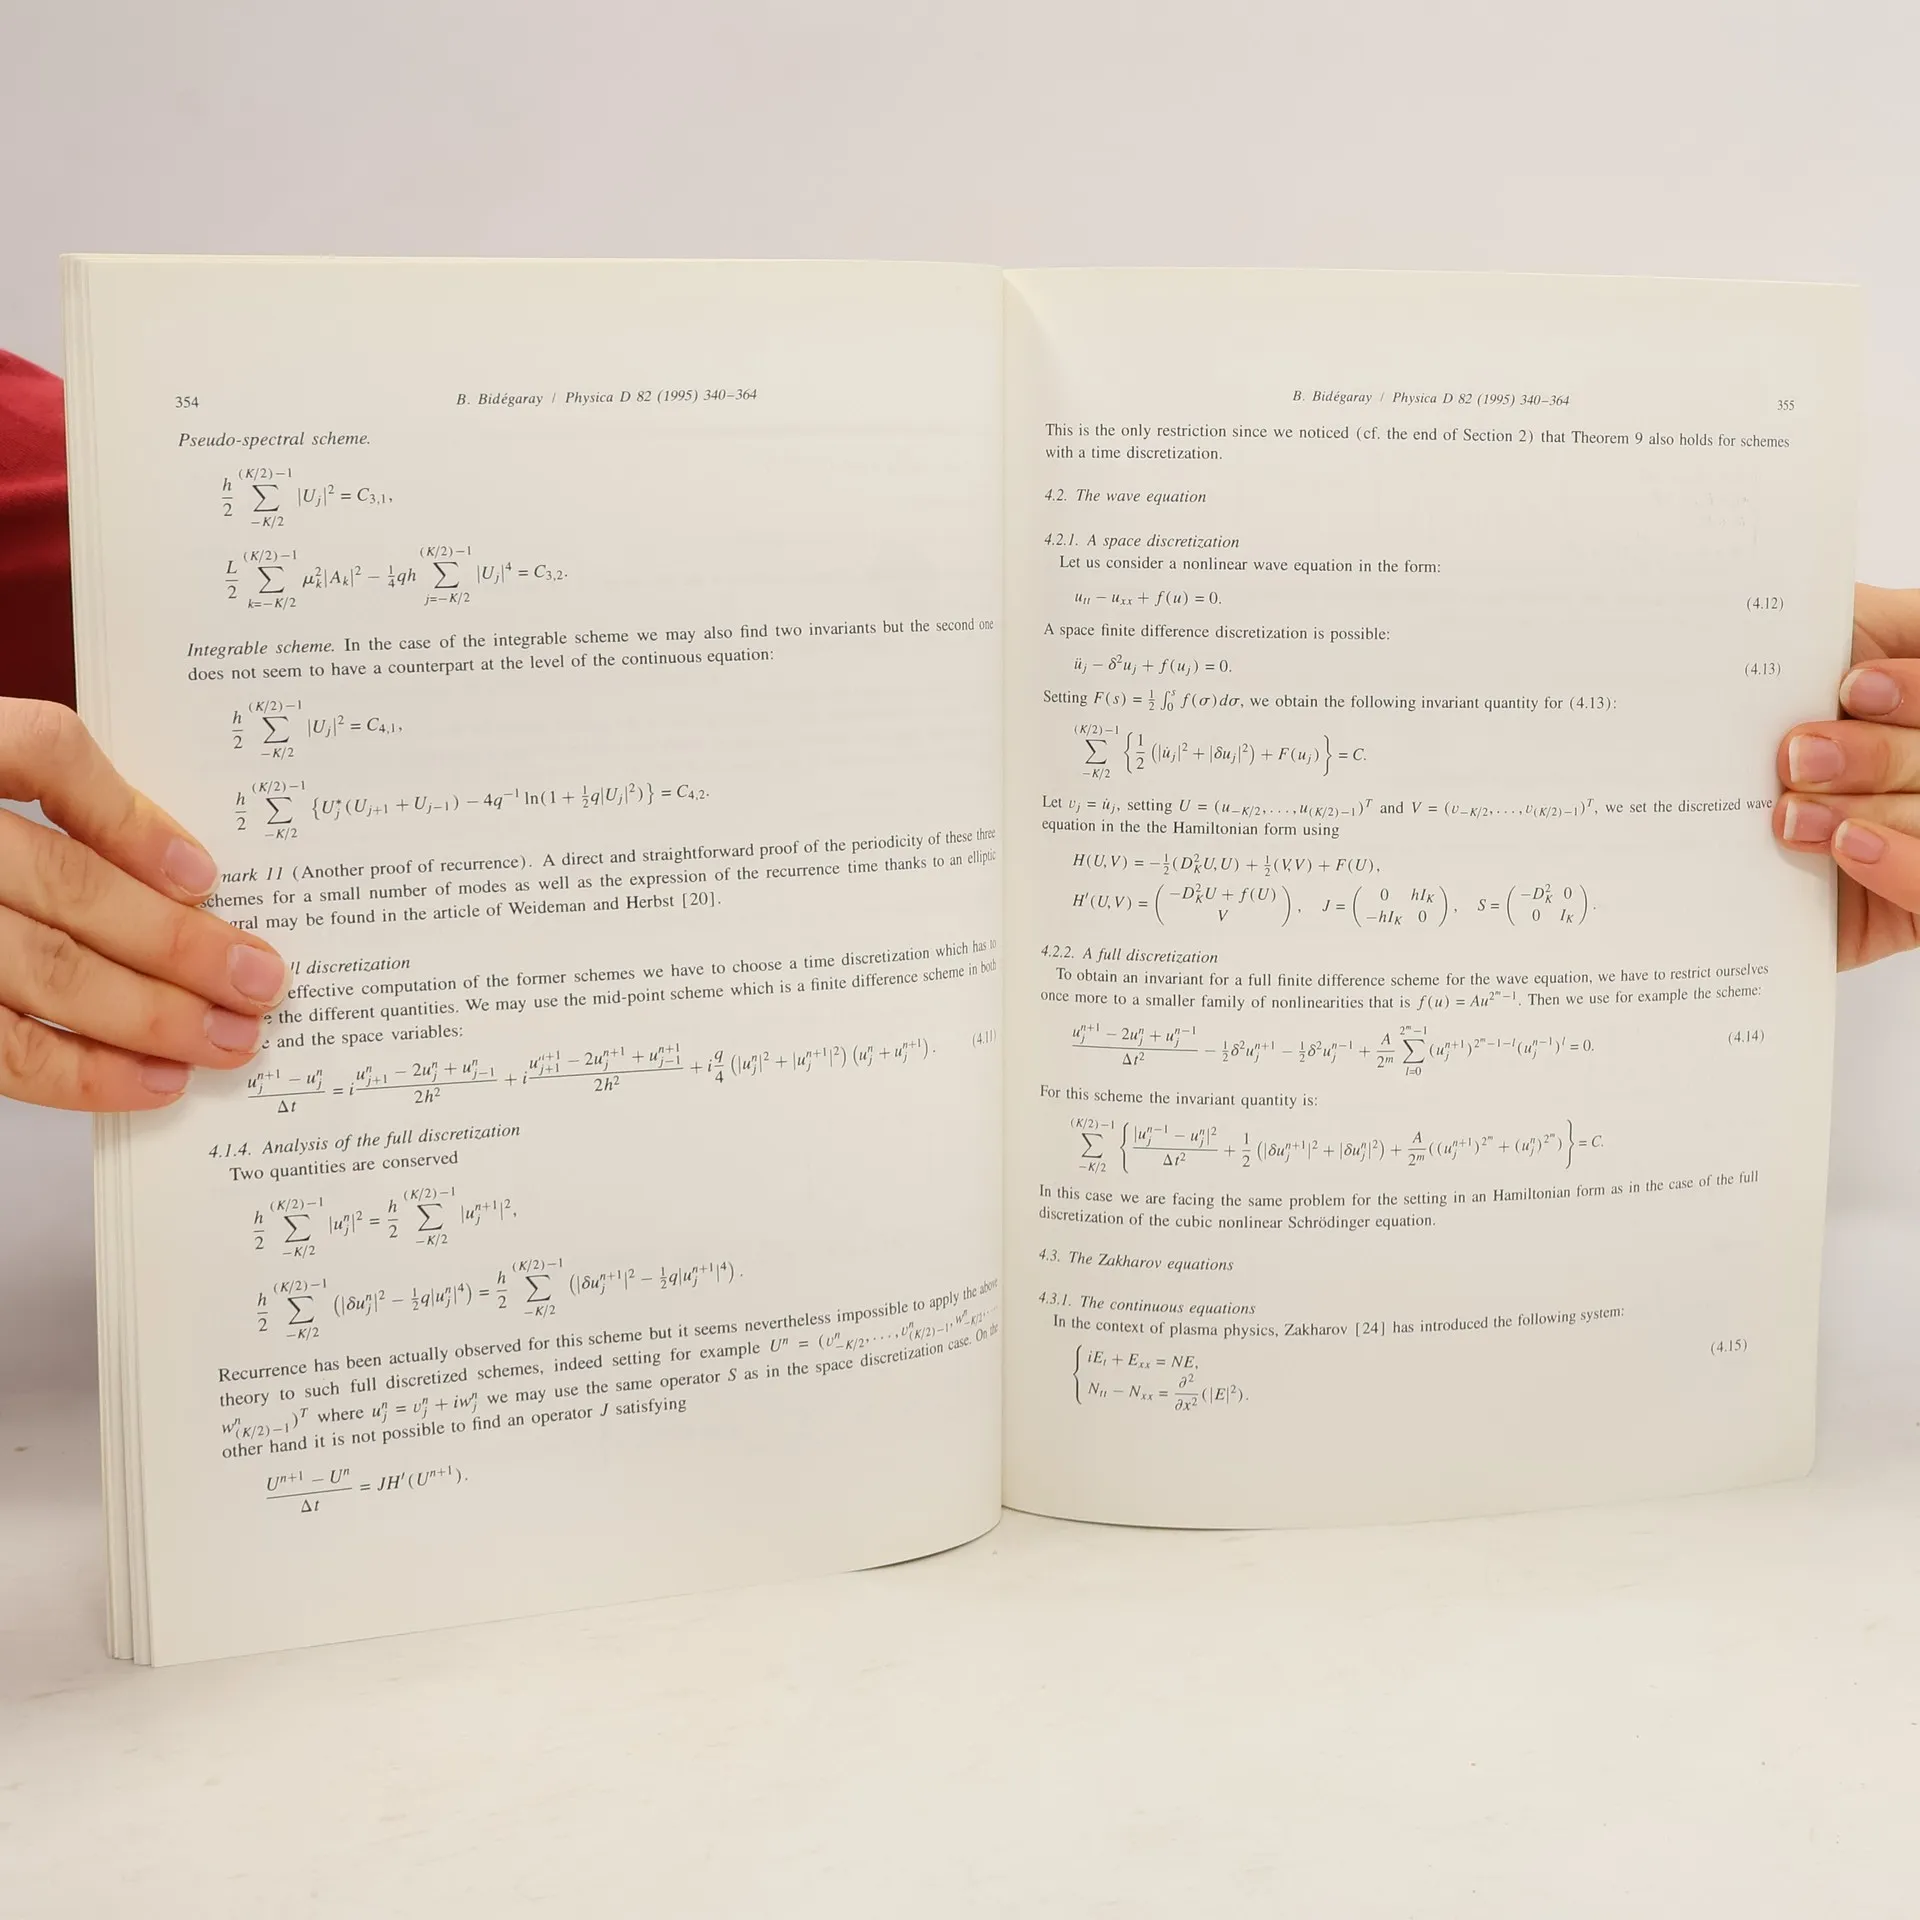 354
B. Bidégaray / Physica D 82 (1995) 340–364
Pseudo-spectral scheme.
h/2 ∑_{−K/2}^{(K/2)−1} |U_j|² = C_{3,1},
L/2 ∑_{k=−K/2}^{(K/2)−1} μ_k²|A_k|² − ¼qh ∑_{j=−K/2}^{(K/2)−1} |U_j|⁴ = C_{3,2}.
Integrable scheme. In the case of the integrable scheme we may also find two invariants but the second one
does not seem to have a counterpart at the level of the continuous equation:
h/2 ∑_{−K/2}^{(K/2)−1} |U_j|² = C_{4,1},
h/2 ∑_{−K/2}^{(K/2)−1} {U_j^*(U_{j+1} + U_{j−1}) − 4q^{−1} ln(1 + ½q|U_j|²)} = C_{4,2}.
mark 11 (Another proof of recurrence). A direct and straightforward proof of the periodicity of these three
schemes for a small number of modes as well as the expression of the recurrence time thanks to an elliptic
gral may be found in the article of Weideman and Herbst [20].
ll discretization
effective computation of the former schemes we have to choose a time discretization which has to
e the different quantities. We may use the mid-point scheme which is a finite difference scheme in both
e and the space variables:
(u_j^{n+1} − u_j^n)/Δt = i (u_{j+1}^n − 2u_j^n + u_{j−1}^n)/2h² + i (u_{j+1}^{n+1} − 2u_j^{n+1} + u_{j−1}^{n+1})/2h² + i q/4 (|u_j^n|² + |u_j^{n+1}|²) (u_j^n + u_j^{n+1}). (4.11)
4.1.4. Analysis of the full discretization
Two quantities are conserved
h/2 ∑_{−K/2}^{(K/2)−1} |u_j^n|² = h/2 ∑_{−K/2}^{(K/2)−1} |u_j^{n+1}|²,
h/2 ∑_{−K/2}^{(K/2)−1} (|δu_j^n|² − ½q|u_j^n|⁴) = h/2 ∑_{−K/2}^{(K/2)−1} (|δu_j^{n+1}|² − ½q|u_j^{n+1}|⁴).
Recurrence has been actually observed for this scheme but it seems nevertheless impossible to apply the above
theory to such full discretized schemes, indeed setting for example U^n = (v_{−K/2}^n, . . . , v_{(K/2)−1}^n, w_{−K/2}^n, . . .
w_{(K/2)−1}^n)^T where u_j^n = v_j^n + iw_j^n we may use the same operator S as in the space discretization case. On the
other hand it is not possible to find an operator J satisfying
(U^{n+1} − U^n)/Δt = JH′(U^{n+1}).
B. Bidégaray / Physica D 82 (1995) 340–364
355
This is the only restriction since we noticed (cf. the end of Section 2) that Theorem 9 also holds for schemes
with a time discretization.
4.2. The wave equation
4.2.1. A space discretization
Let us consider a nonlinear wave equation in the form:
u_{tt} − u_{xx} + f(u) = 0. (4.12)
A space finite difference discretization is possible:
ü_j − δ²u_j + f(u_j) = 0. (4.13)
Setting F(s) = ½ ∫_0^s f(σ)dσ, we obtain the following invariant quantity for (4.13):
∑_{−K/2}^{(K/2)−1} {½ (|u̇_j|² + |δu_j|²) + F(u_j)} = C.
Let v_j = u̇_j, setting U = (u_{−K/2}, . . . , u_{(K/2)−1})^T and V = (v_{−K/2}, . . . , v_{(K/2)−1})^T, we set the discretized wave
equation in the the Hamiltonian form using
H(U, V) = −½(D_K²U, U) + ½(V, V) + F(U),
H′(U, V) = (−D_K²U + f(U) ; V), J = (0 hI_K ; −hI_K 0), S = (−D_K² 0 ; 0 I_K).
4.2.2. A full discretization
To obtain an invariant for a full finite difference scheme for the wave equation, we have to restrict ourselves
once more to a smaller family of nonlinearities that is f(u) = Au^{2^m−1}. Then we use for example the scheme:
(u_j^{n+1} − 2u_j^n + u_j^{n−1})/Δt² − ½δ²u_j^{n+1} − ½δ²u_j^{n−1} + A/2^m ∑_{l=0}^{2^m−1} (u_j^{n+1})^{2^m−1−l}(u_j^{n−1})^l = 0. (4.14)
For this scheme the invariant quantity is:
∑_{−K/2}^{(K/2)−1} {|u_j^{n−1} − u_j^n|²/Δt² + ½ (|δu_j^{n+1}|² + |δu_j^n|²) + A/2^m ((u_j^{n+1})^{2^m} + (u_j^n)^{2^m})} = C.
In this case we are facing the same problem for the setting in an Hamiltonian form as in the case of the full
discretization of the cubic nonlinear Schrödinger equation.
4.3. The Zakharov equations
4.3.1. The continuous equations
In the context of plasma physics, Zakharov [24] has introduced the following system:
iE_t + E_{xx} = NE,
N_{tt} − N_{xx} = ∂²/∂x² (|E|²). (4.15)